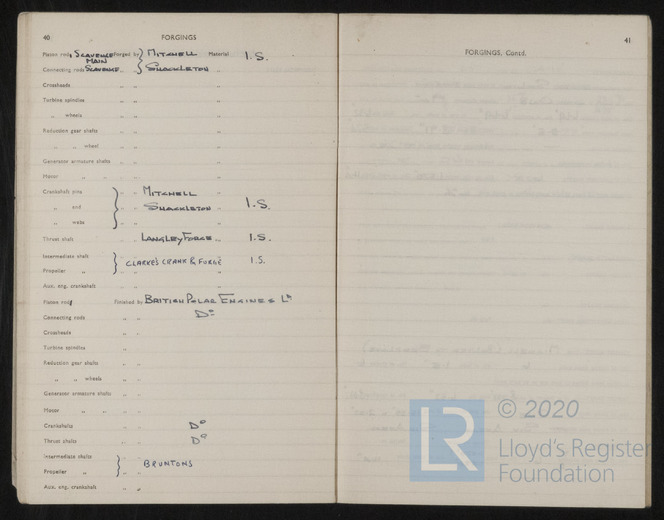 40
FORGINGS
Piston rods SCAVENGE Forged by } MITCHELL Material I.S.
MAIN
Connecting rods SCAVENGE. } SHACKLETON „
Crossheads „ „ „
Turbine spindles „ „ „
„ wheels „ „ „
Reduction gear shafts „ „ „
„ „ wheel „ „ „
Generator armature shafts „ „ „
Motor „ „ „ „ „
Crankshaft pins } „ „ MITCHELL „
„ and „ „ SHACKLETON „ I.S.
„ webs } „ „ „
Thrust shaft „ „ LANGLEY FORGE „ I.S.
Intermediate shaft } „ „ CLARKE'S CRANK & FORGE I.S.
Propeller „
Aux. eng. crankshaft „ „ „
Piston rods Finished by BRITISH POLAR ENGINES Lᴰ
Connecting rods „ „ Dº
Crossheads „ „
Turbine spindles „ „
Reduction gear shafts „ „
„ „ wheels „ „
Generator armature shafts „ „
Motor „ „ „ „
Crankshafts „ „ Dº
Thrust shafts „ „ Dº
Intermediate shafts } „ „ BRUNTONS
Propeller „ } „ „
Aux. eng. crankshaft „ „
41
FORGINGS, Contd.
LR
© 2020
Lloyd's Register
Foundation